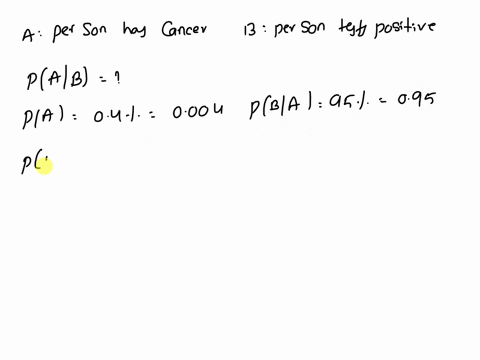 A: person has Cancer B: person tests positive
P(A|B) = ?
P(A) = 0.4% = 0.004 P(B|A) = 95% = 0.95
P(